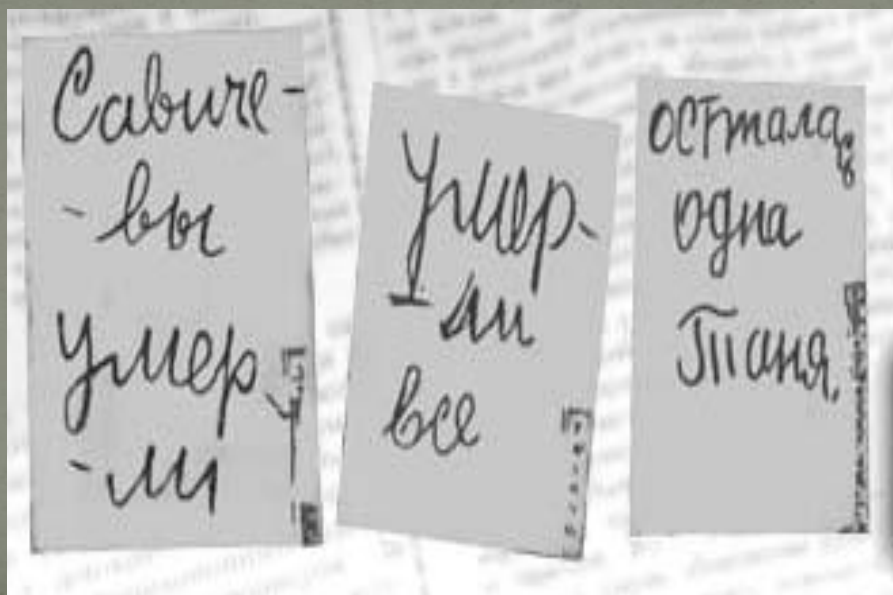 Савиче-
-вы
умер
-ли
Умер-
-ли
все
Осталась
одна
Таня.